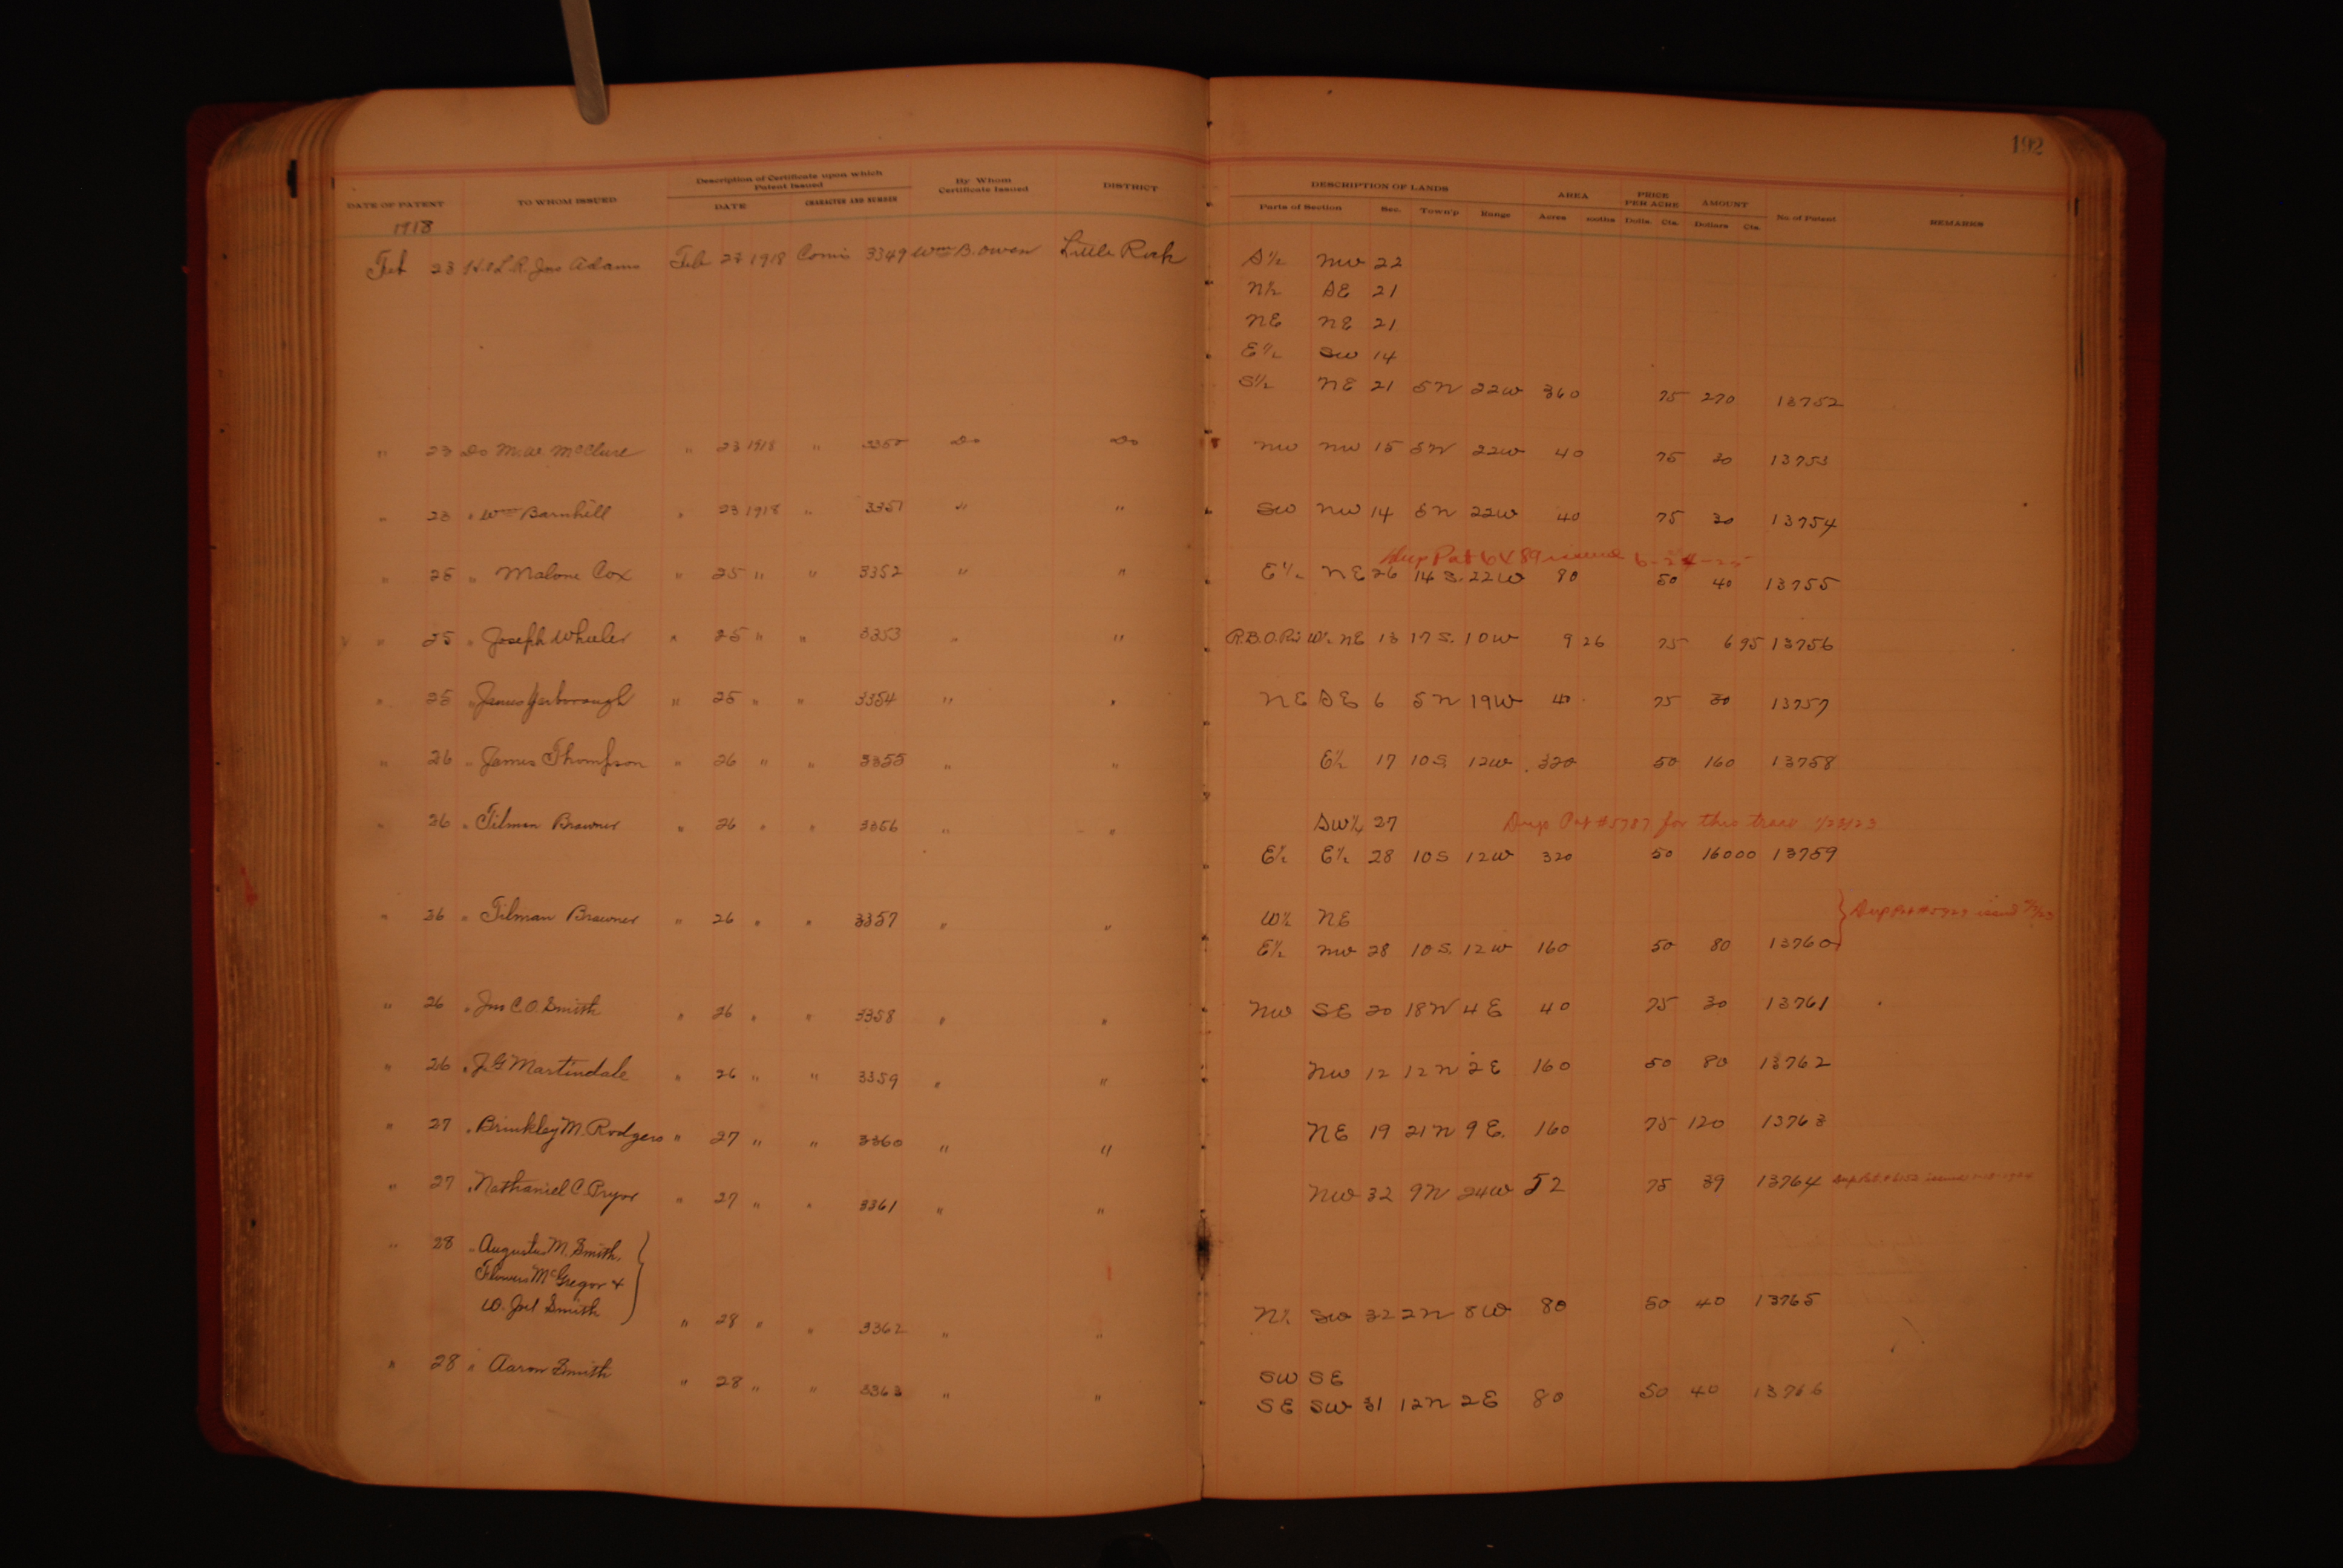 192
DATE OF PATENT TO WHOM ISSUED Description of Certificate upon which Patent Issued DATE CHARACTER AND NUMBER By Whom Certificate Issued DISTRICT DESCRIPTION OF LANDS Parts of Section Sec. Town'p Range AREA Acres 100ths PRICE PER ACRE Dolls. Cts. AMOUNT Dollars Cts. No of Patent REMARKS
1918
Feb 23 Jno Adams Feb 23 1918 Comis 3349 Wm B. Owen Little Rock S½ NW 22
N½ SE 21
NE NE 21
E½ SW 14
S½ NE 21 5N 22W 360 75 270 13752
" 23 Do M.W. McClure " 23 1918 " 3350 Do Do NW NW 15 5N 22W 40 75 30 13753
" 23 " Wm Barnhill " 23 1918 " 3351 " " SW NW 14 5N 22W 40 75 30 13754
Dup Pat issued
" 25 " Malone Cox " 25 " " 3352 " " E½ NE 26 14 S. 22W 80 50 40 13755
" 25 " Joseph Wheeler " 25 " " 3353 " " W½ NE 13 17 S. 10W 9 26 75 6 95 13756
" 25 " James Yarborough " 25 " " 3354 " " NE SE 6 5N 19W 40 75 30 13757
" 26 " James Thompson " 26 " " 3355 " " E½ 17 10S 12W 320 50 160 13758
" 26 " Tilman Brawner " 26 " " 3356 " " SW¼ 27 Dup Pat #5787 for this tract
E½ E½ 28 10S 12W 320 50 160 00 13759
" 26 " Tilman Brawner " 26 " " 3357 " " W½ NE Dup Pat issued
E½ NW 28 10S. 12W 160 50 80 13760
" 26 " Jno C.O. Smith " 26 " " 3358 " " NW SE 20 18N 4E 40 75 30 13761
" 26 " J.G Martindale " 26 " " 3359 " " NW 12 12N 2E 160 50 80 13762
" 27 " Brinkley M. Rodgers " 27 " " 3360 " " NE 19 21N 9E. 160 75 120 13763
" 27 " Nathaniel C. Pryor " 27 " " 3361 " " NW 32 9N 24W 52 75 39 13764 Dup Pat. #6152 issued
" 28 " Augustus M. Smith,
Flowers McGregor &
W. Smith " 28 " " 3362 " " N½ SW 32 2N 8W 80 50 40 13765
" 28 " Aaron Smith " 28 " " 3363 " " SW SE
SE SW 31 12N 2E 80 50 40 13766